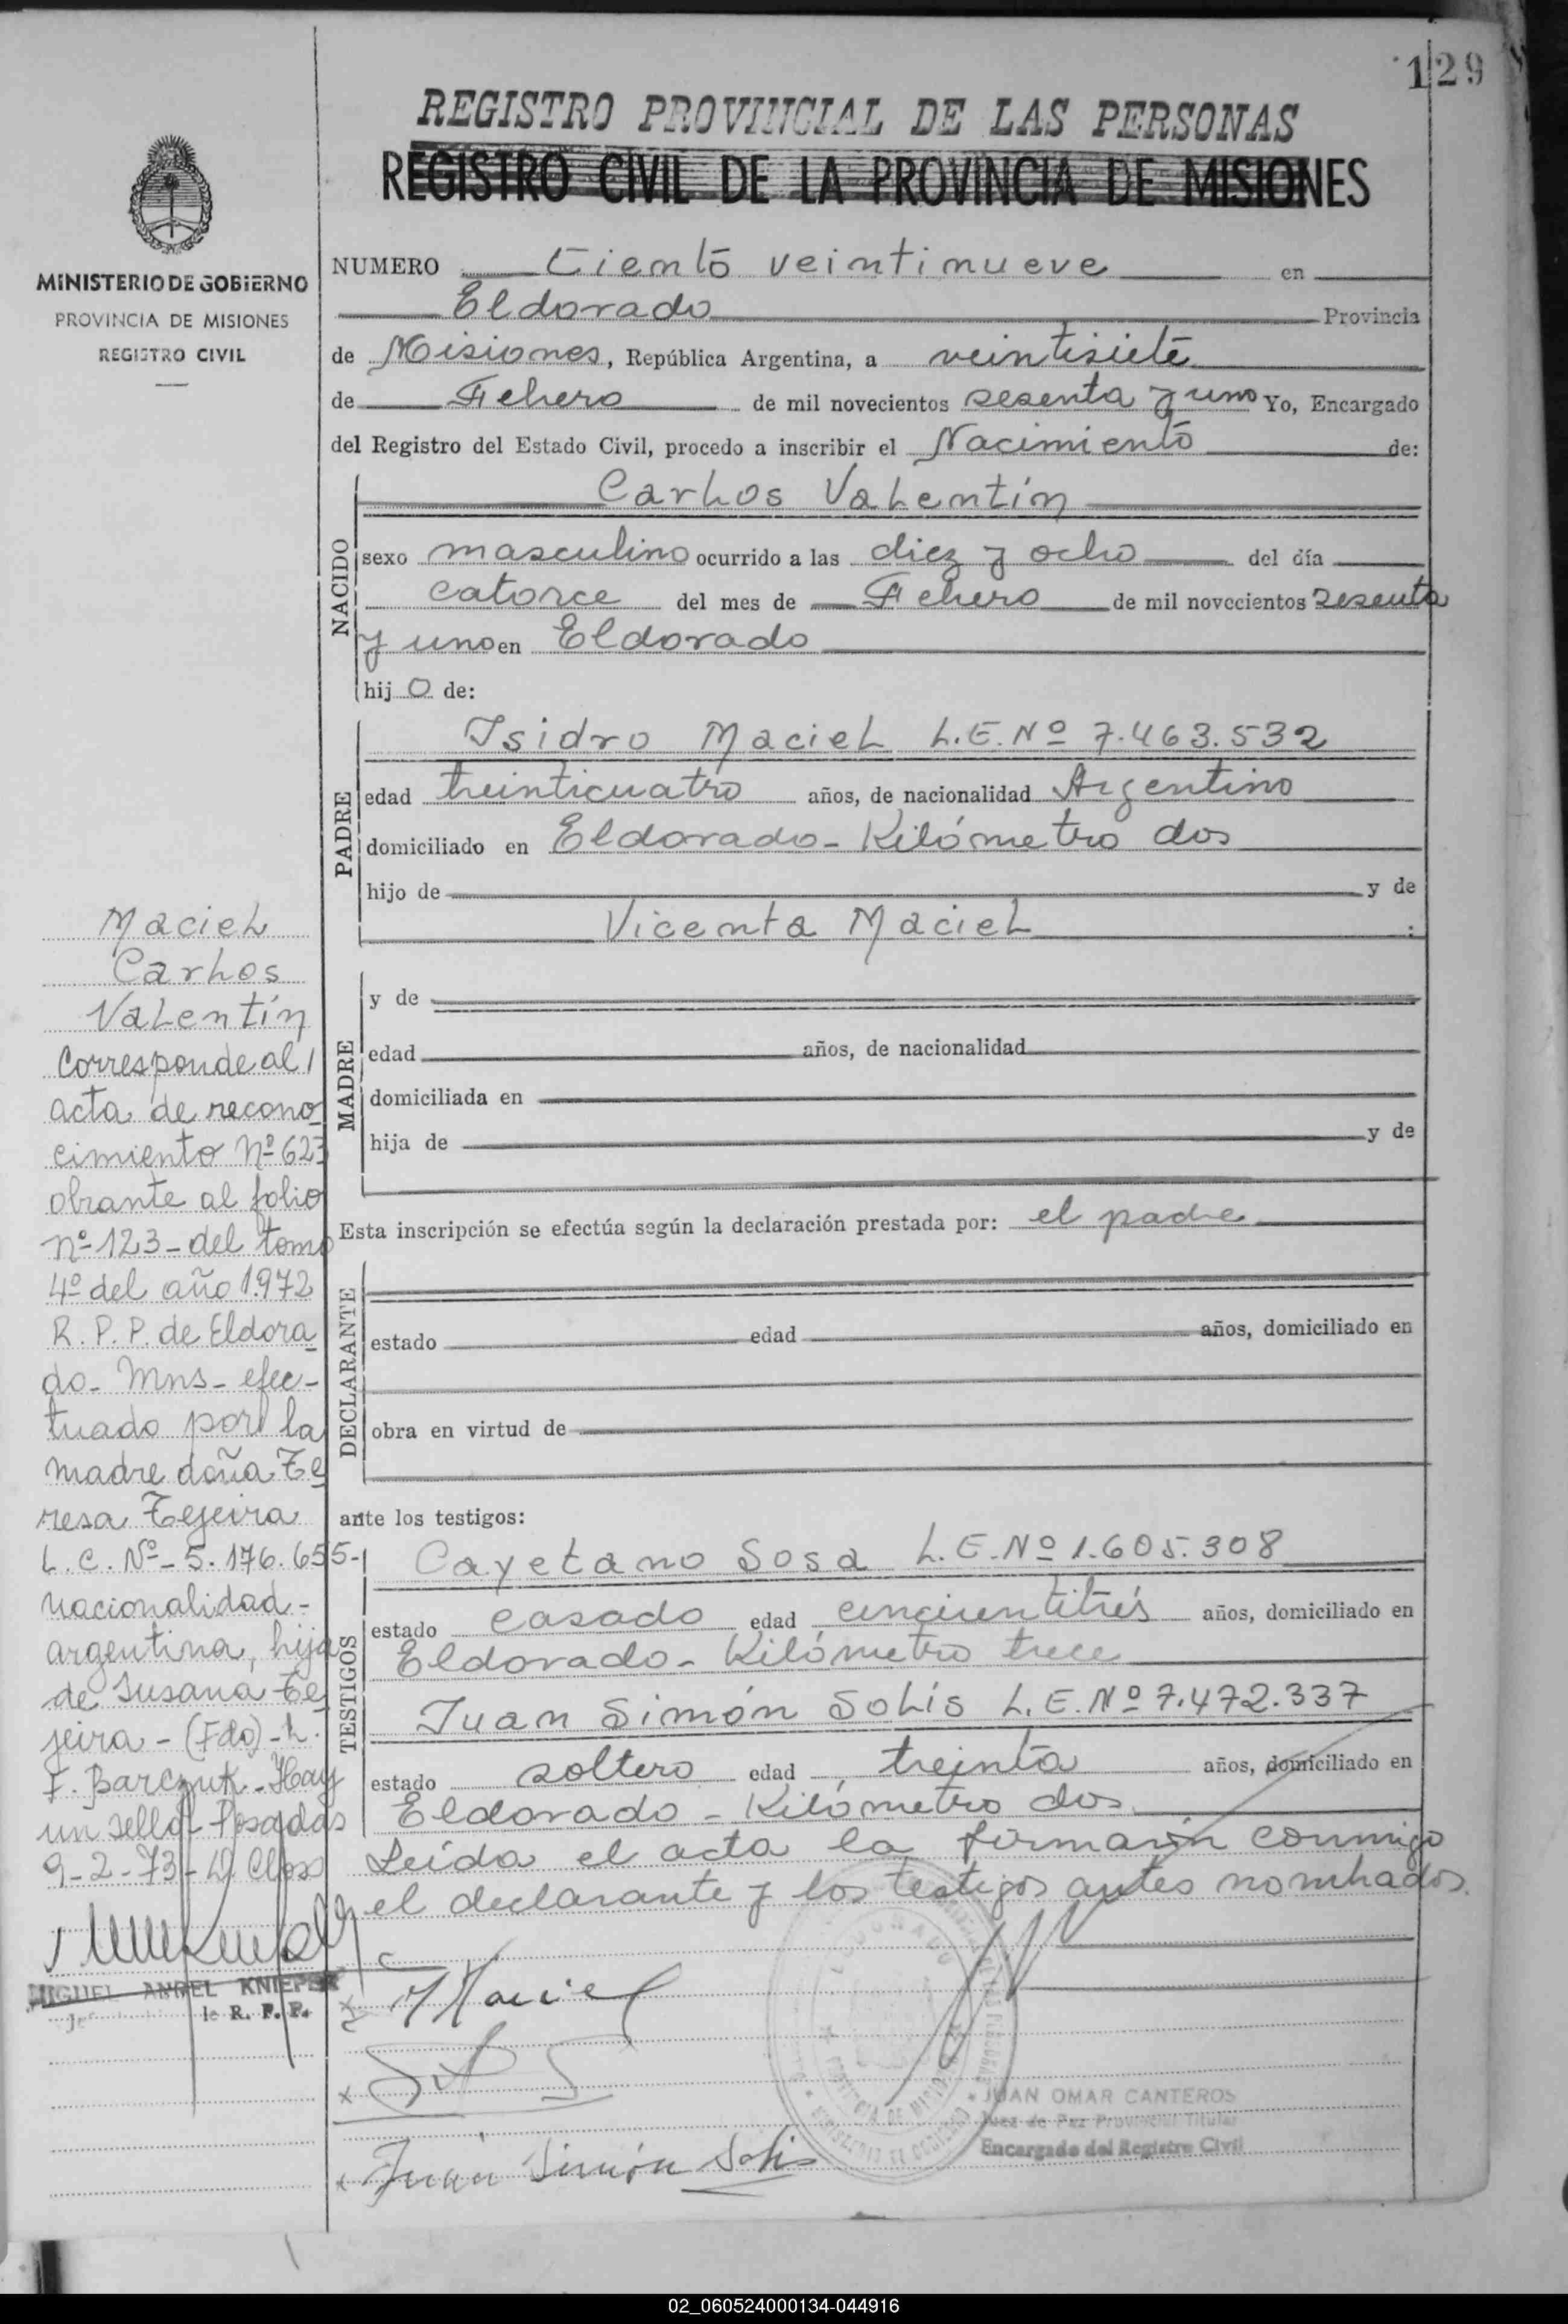 129
REGISTRO PROVINCIAL DE LAS PERSONAS
REGISTRO CIVIL DE LA PROVINCIA DE MISIONES
MINISTERIO DE GOBIERNO
PROVINCIA DE MISIONES
REGISTRO CIVIL
NUMERO Ciento veintinueve en
Eldorado Provincia
de Misiones, República Argentina, a veintisiete
de Febrero de mil novecientos sesenta y uno Yo, Encargado
del Registro del Estado Civil, procedo a inscribir el Nacimiento de:
NACIDO
Carlos Valentín
sexo masculino ocurrido a las diez y ocho del día
catorce del mes de Febrero de mil novecientos sesenta
y uno en Eldorado
hijo de:
PADRE
Isidro Maciel L.E. Nº 7.463.532
edad treinticuatro años, de nacionalidad Argentino
domiciliado en Eldorado - Kilómetro dos
hijo de y de
Vicenta Maciel :
MADRE
y de
edad años, de nacionalidad
domiciliada en
hija de y de
Esta inscripción se efectúa según la declaración prestada por: el padre
DECLARANTE
estado edad años, domiciliado en
obra en virtud de
ante los testigos:
TESTIGOS
Cayetano Sosa L.E. Nº 1.605.308
estado casado edad cincuentitrés años, domiciliado en
Eldorado - Kilómetro trece
Juan Simón Solís L.E. Nº 7.472.337
estado soltero edad treinta años, domiciliado en
Eldorado - Kilómetro dos
Leída el acta la firman conmigo
el declarante y los testigos antes nombrados.
Maciel
Carlos
Valentín
Corresponde al /
acta de recono
cimiento Nº 623
obrante al folio
nº 123 - del tomo
4º del año 1.972
R. P. P. de Eldora
do - Mns - efec-
tuado por la
madre doña Te
resa Tejeira
L. C. Nº - 5.176.655-
nacionalidad -
argentina, hija
de Susana Te
jeira - (Fdo) - L.
F. Barczuk - Hay
un sello - Posadas
9-2-73 -
MIGUEL ANGEL KNIEPER
Jef de R. P. P.
Maciel
Juan Simón Solis
PROVINCIA DE MISIONES
MINISTERIO DE GOBIERNO
JUAN OMAR CANTEROS
Juez de Paz Provincial Titular
Encargado del Registro Civil
02_060524000134-044916